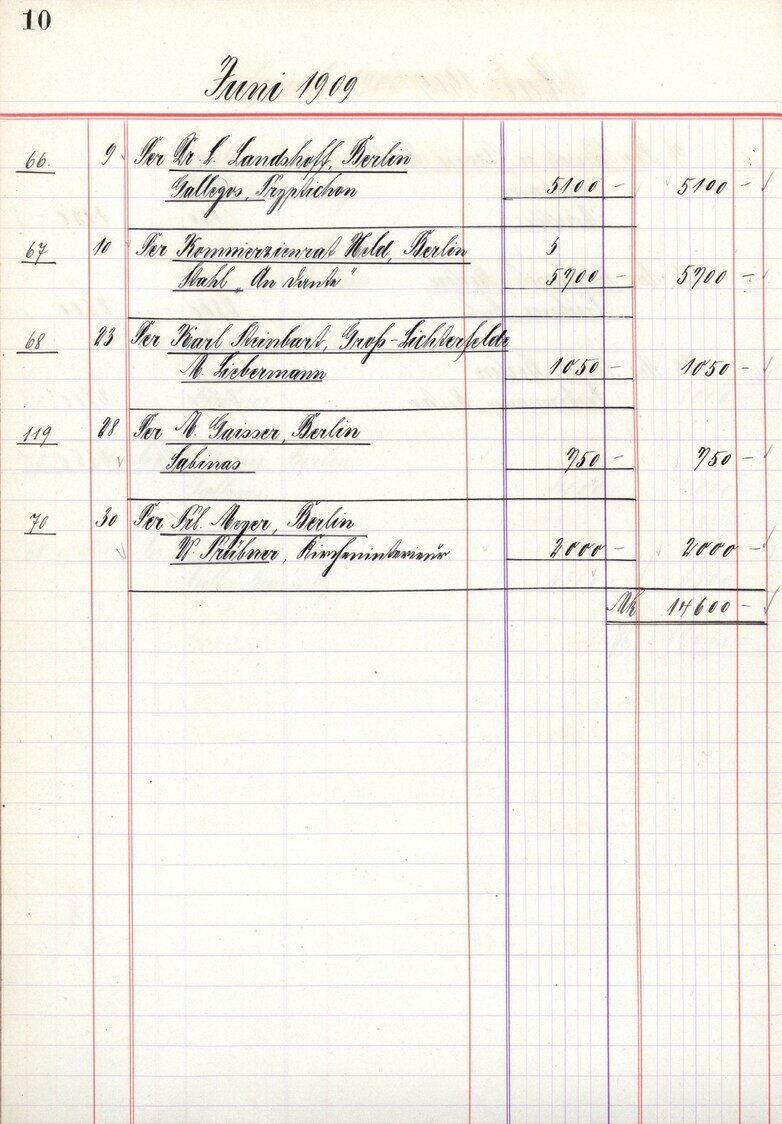 10
Juni 1909
66. 9 Per Dr. L. Landshoff, Berlin
Gallegos, Tryptichon 5100 – 5100 –
67 10 Per Kommerzienrat Held, Berlin 5
Stahl „An Dante" 5700 – 5700 –
68 23 Per Karl Steinbart, Groß-Lichterfelde
M. Liebermann 1050 – 1050 –
119 28 Per M. Gaisser, Berlin
Sabinas 750 – 750 –
70 30 Per Frl. Meyer, Berlin
W. Trübner, Kircheninterieur 2000 – 2000 –
Mk 14600 –